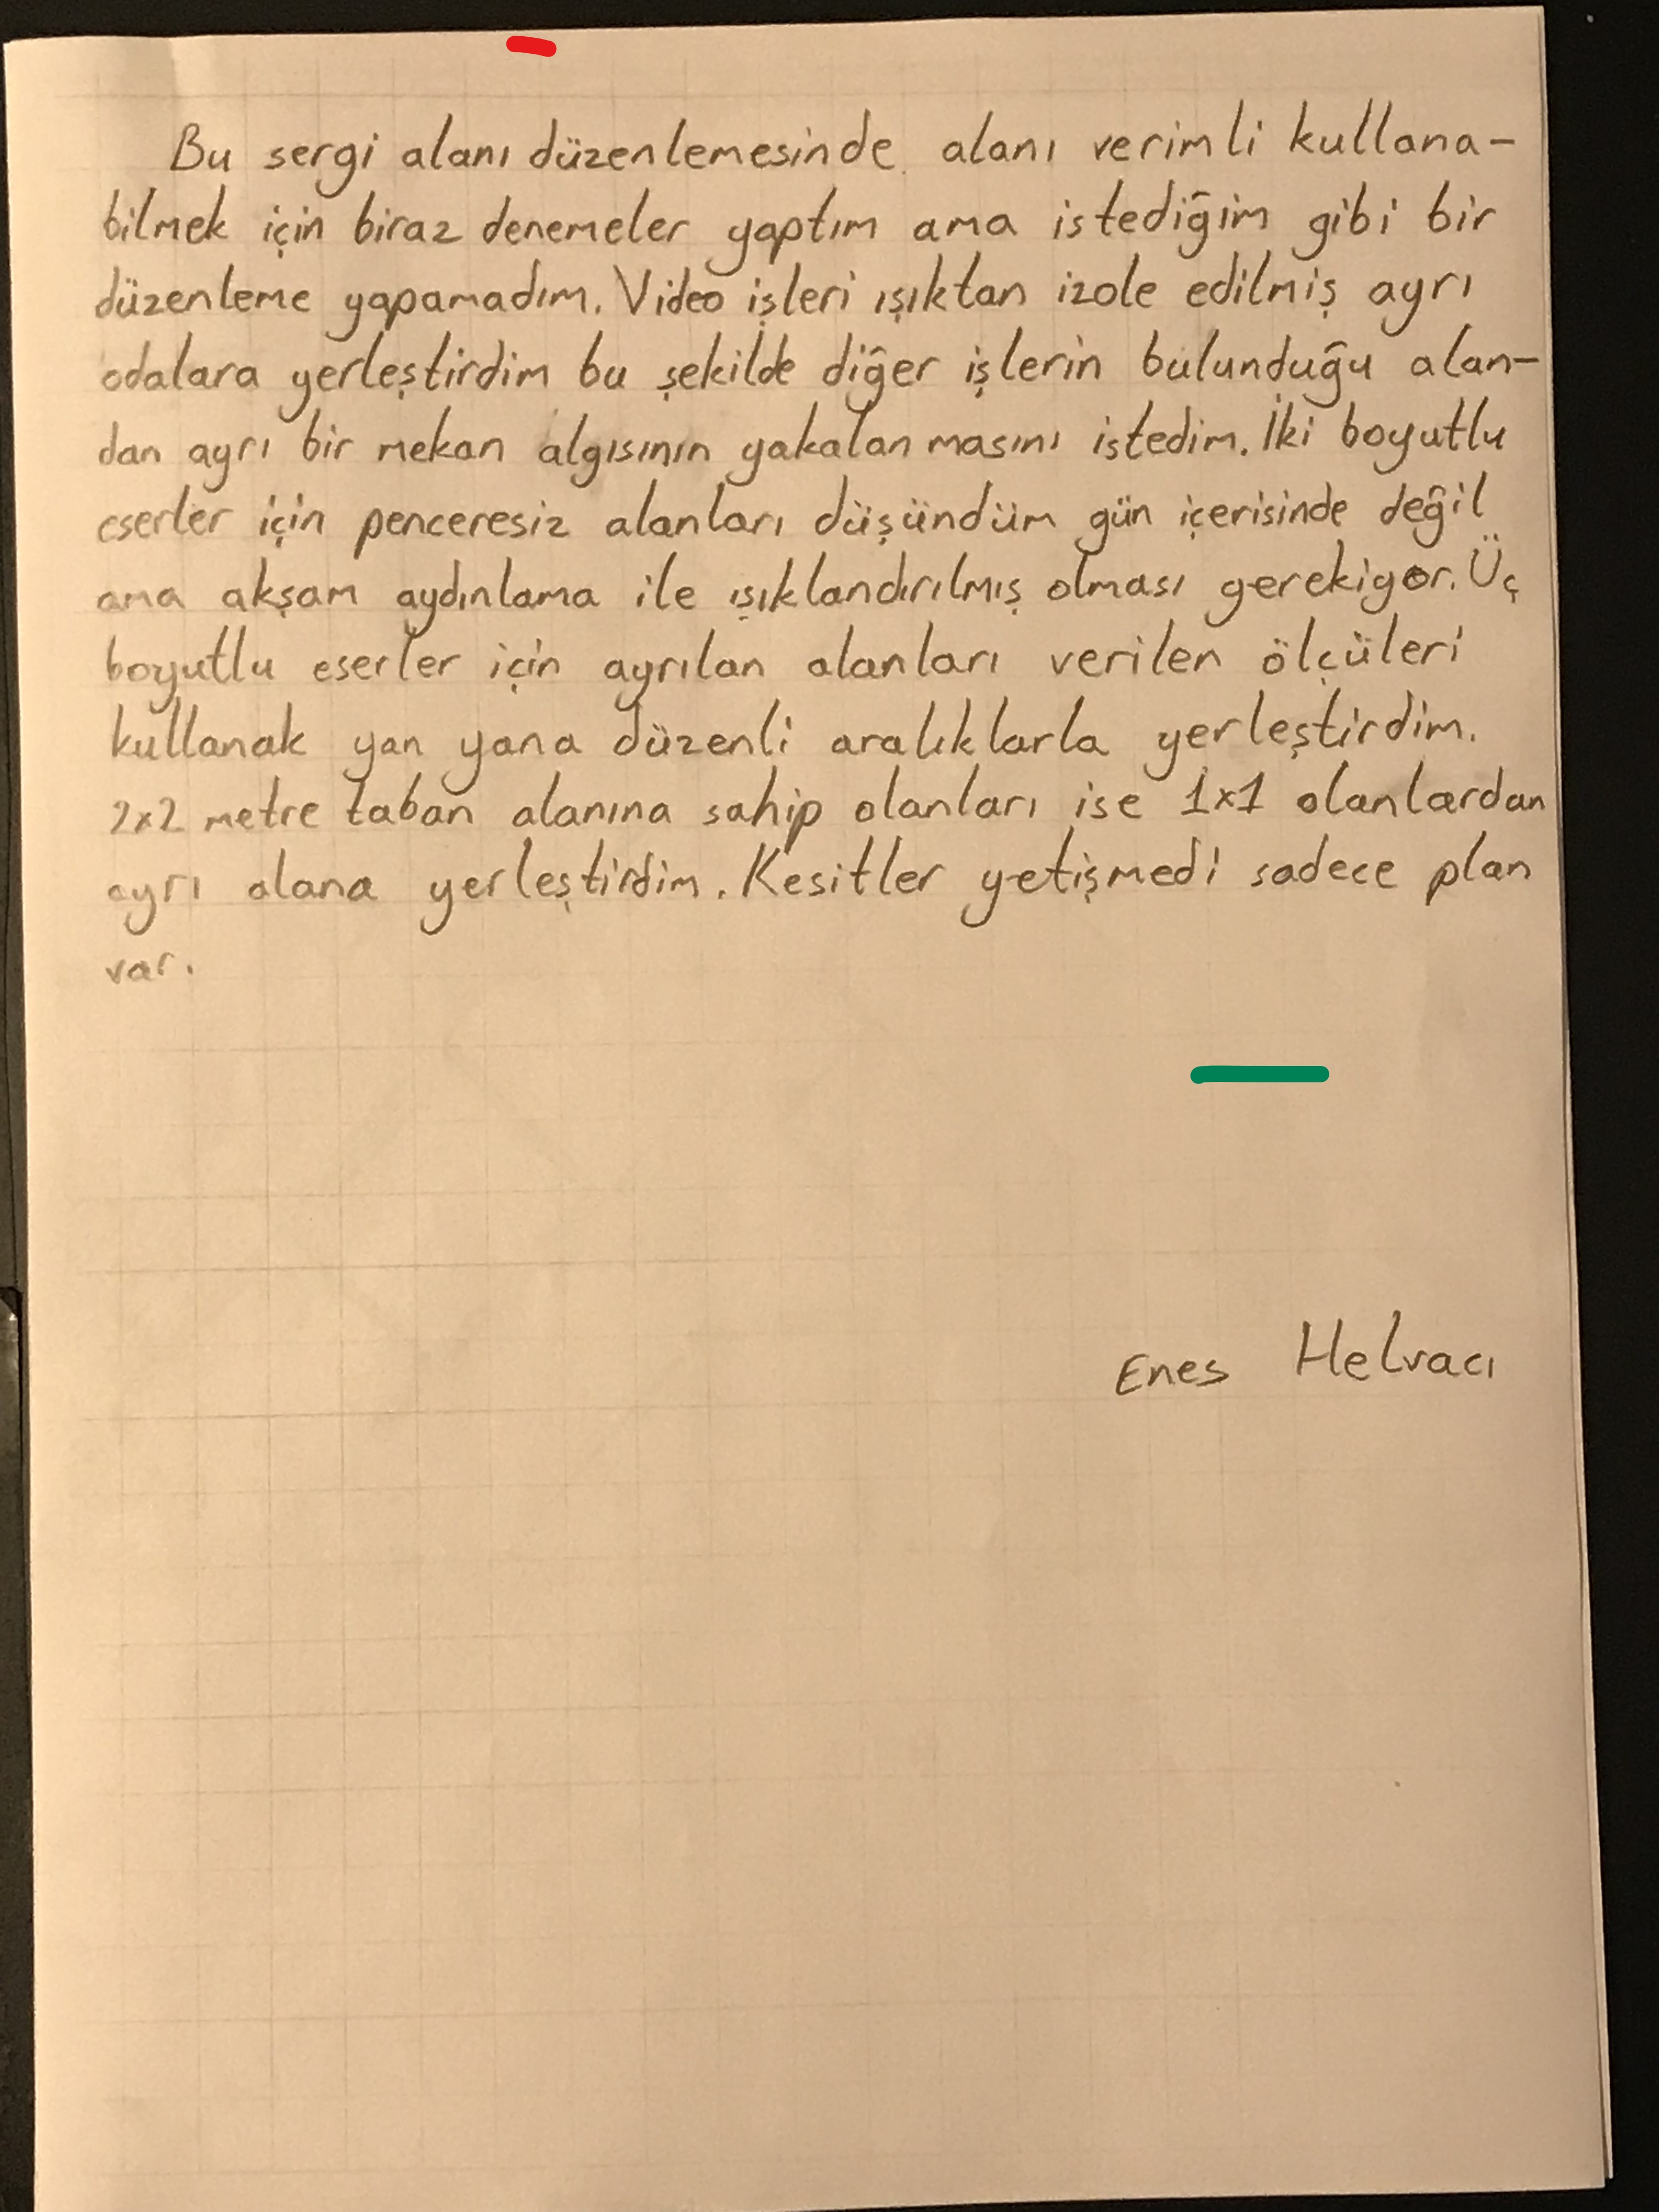 Bu sergi alanı düzenlemesinde alanı verimli kullana-
bilmek için biraz denemeler yaptım ama istediğim gibi bir
düzenleme yapamadım. Video işleri ışıktan izole edilmiş ayrı
odalara yerleştirdim bu şekilde diğer işlerin bulunduğu alan-
dan ayrı bir mekan algısının yakalanmasını istedim. İki boyutlu
eserler için penceresiz alanları düşündüm gün içerisinde değil
ama akşam aydınlama ile ışıklandırılmış olması gerekiyor. Üç
boyutlu eserler için ayrılan alanları verilen ölçüleri
kullanak yan yana düzenli aralıklarla yerleştirdim.
2x2 metre taban alanına sahip olanları ise 1x1 olanlardan
ayrı alana yerleştirdim. Kesitler yetişmedi sadece plan
var.
Enes Helvacı